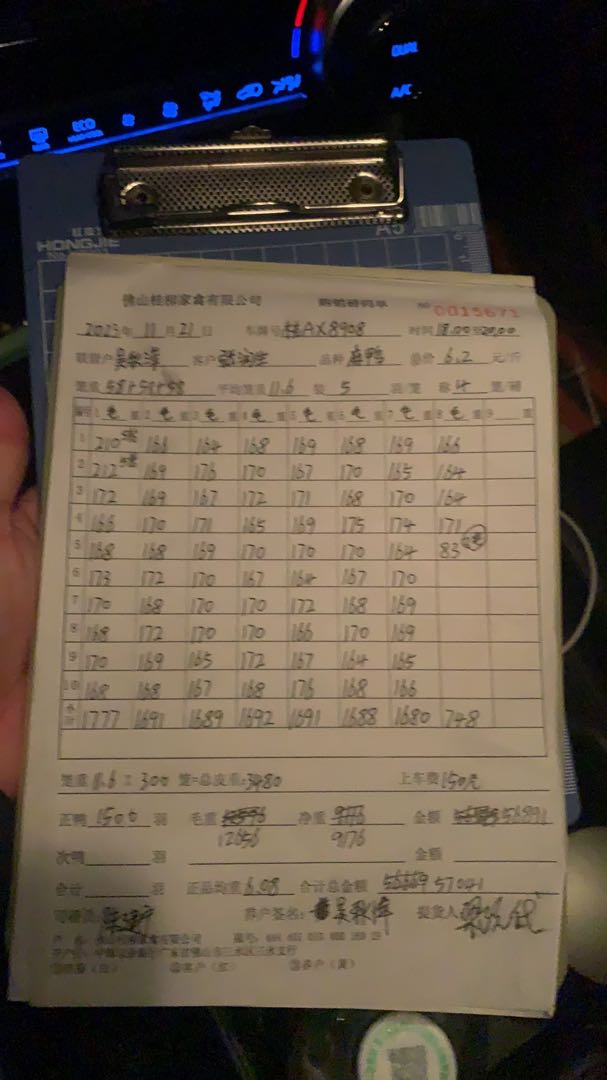 DUAL
ECO
A/C
HONGJIE
A5
佛山桂柳家禽有限公司 购销磅码单 No 0015671
2023年 11月21日 车牌号 桂AX8908 时间 18:00至20:00
客户 品种 麻鸭 总价 6.2 元/斤
笼重 58+58+58 平均笼重 11.6 装 5 羽/笼 称 4 笼/磅
1 毛重 2 毛重 3 毛重 4 毛重 5 毛重 6 毛重 7 毛重 8 毛重 9 重
1 210 58 166 164 168 169 168 169 166
2 212 58 169 176 170 167 170 165 164
3 172 169 167 172 171 168 170 164
4 166 170 171 165 169 175 174 171
5 168 168 169 170 170 170 164 83
6 173 172 170 167 164 167 170
7 170 168 170 170 172 168 169
8 168 172 170 170 166 170 169
9 170 169 165 172 167 164 165
10 168 168 167 168 176 168 166
小计 1777 1691 1689 1692 1691 1688 1680 748
笼重 11.6 × 300 笼=总皮重: 3480 上车费 150元
正鸭 1500 羽 毛重 12656 净重 9176 金额 56891
次鸭 羽 金额
合计 羽 正品均重 6.08 合计总金额 57041
司磅员: 养户签名: 提货人
户名: 佛山桂柳家禽有限公司
②客户（红） ③养户（黄）